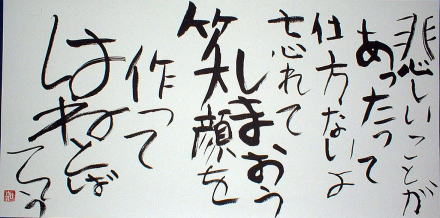 悲しいことが
あったって
仕方ないよ
忘れて
しまおう
笑顔を
作って
はねとば
そう